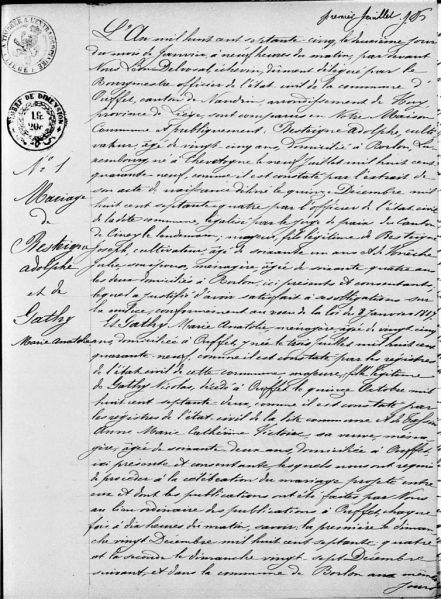 premier feuillet
L'An mil huit cent septante cinq, le deuxième jour
du mois de Janvier, à neuf heures du matin, par devant
Nous Delreval, échevin, dûment délégué par le
Bourgmestre officier de l'état civil de la commune d'
Ouffet, canton de Nandrin, arrondissement de Huy
province de Liège, sont comparus en Notre Maison
Commune et publiquement, Resteigne Adolphe, culti-
vateur, âgé de vingt cinq ans, domicilié à Borlon Lu-
xembourg, né à le neuf Juillet mil huit cent
quarante-neuf, comme il est constaté par l'extrait de
son acte de naissance délivré le quinze Décembre mil
huit cent septante quatre par l'officier de l'état civil
de la dite commune, légalisé par le juge de paix du canton
de Ciney le lendemain, majeur, fils légitime de Resteigne
Joseph, cultivateur âgé de soixante un ans et de
Julie son épouse, ménagère, âgée de soixante quatre ans
les deux domiciliés à Borlon, ici présents et consentants,
lequel a justifié d'avoir satisfait à ses obligations sur
la milice, conformément au vœu de la loi du 8 Janvier 1817
Et Gathy Marie Anatolie, ménagère, âgée de vingt cinq
ans, domiciliée à Ouffet, y née le trois Juillet mil huit cent
quarante-neuf comme il est constaté par les registres
de l'état civil de cette commune, majeure, fille légitime
de Gathy Nicolas, décédé à Ouffet le quinze Octobre mil
huit cent septante deux, comme il est constaté par
les registres de l'état civil de la dite commune et de
Anne Marie Catherine Victoire, sa veuve, ména-
gère, âgée de soixante deux ans, domiciliée à Ouffet,
ici présente et consentante, lesquels nous ont requis
de procéder à la célébration du mariage projeté entre
eux et dont les publications ont été faites par Nous
au lieu ordinaire des publications à Ouffet, chaque
fois à dix heures du matin, savoir: la première le diman-
che vingt Décembre mil huit cent septante quatre
et la seconde le dimanche vingt sept Décembre
suivant, et dans la commune de Borlon aux mêmes
jours
N° 1
Mariage
de
Resteigne
adolphe
et de
Gathy
Marie Anatolie
TIMBRE DE DIMENSION